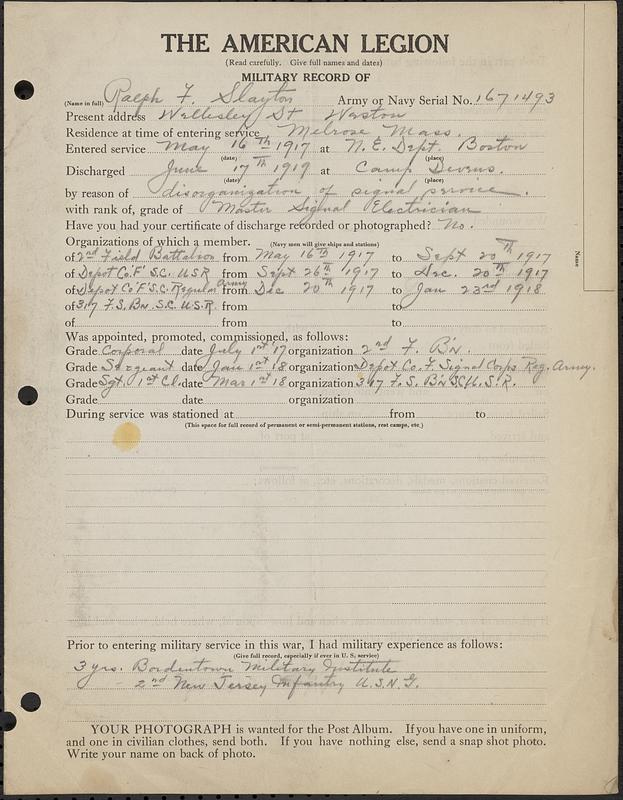 THE AMERICAN LEGION
(Read carefully. Give full names and dates)
MILITARY RECORD OF
(Name in full) Ralph F. Slayton Army or Navy Serial No. 1671493
Present address Wellesley St Weston
Residence at time of entering service Melrose Mass.
Entered service May 16th 1917 at N.E. Dept. Boston
(date) (place)
Discharged June 17th 1919 at Camp Devens.
(date) (place)
by reason of disorganization of signal service.
with rank, or grade of Master Signal Electrician
Have you had your certificate of discharge recorded or photographed? No.
Organizations of which a member. (Navy men will give ships and stations)
of 2nd Field Battalion from May 16th 1917 to Sept 20th 1917
of Depot Co. F' S.C. U.S.R from Sept 26th 1917 to Dec. 20th 1917
of Depot Co 'F' S.C. Regular Army from Dec 20th 1917 to Jan 23rd 1918
of 317 F.S. Bn. S.C. U.S.R. from to
of from to
Was appointed, promoted, commissioned, as follows:
Grade Corporal date July 1st '17 organization 2nd F. B'n.
Grade Sergeant date Jan 1st 18 organization Depot Co. F. Signal Corps Reg. Army.
Grade Sgt. 1st Cl. date Mar 1st 18 organization 317 F. S. B'n SC U.S.R.
Grade date organization
During service was stationed at from to
(This space for full record of permanent or semi-permanent stations, rest camps, etc.)
Name
Prior to entering military service in this war, I had military experience as follows:
(Give full record, especially if ever in U. S. service)
3 yrs. Bordentown Military Institute
- 2nd New Jersey Infantry U.S.N.G.
YOUR PHOTOGRAPH is wanted for the Post Album. If you have one in uniform,
and one in civilian clothes, send both. If you have nothing else, send a snap shot photo.
Write your name on back of photo.